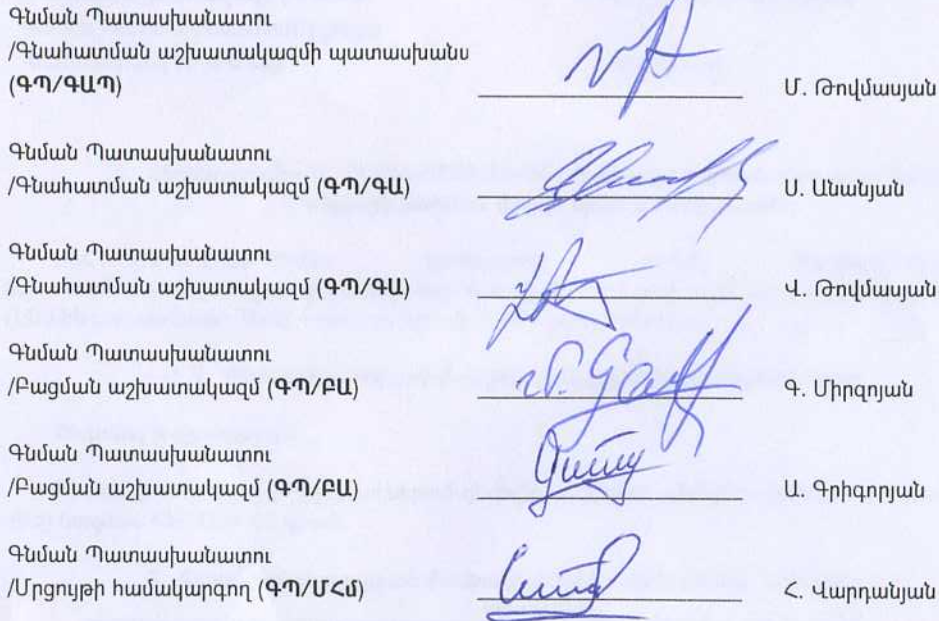 Գնման Պատասխանատու
/Գնահատման աշխատակազմի պատասխանս
(ԳՊ/ԳԱՊ) Մ. Թովմասյան
Գնման Պատասխանատու
/Գնահատման աշխատակազմ (ԳՊ/ԳԱ) Ս. Անանյան
Գնման Պատասխանատու
/Գնահատման աշխատակազմ (ԳՊ/ԳԱ) Վ. Թովմասյան
Գնման Պատասխանատու
/Բացման աշխատակազմ (ԳՊ/ԲԱ) Գ. Միրզոյան
Գնման Պատասխանատու
/Բացման աշխատակազմ (ԳՊ/ԲԱ) Ա. Գրիգորյան
Գնման Պատասխանատու
/Մրցույթի համակարգող (ԳՊ/ՄՀմ) Հ. Վարդանյան